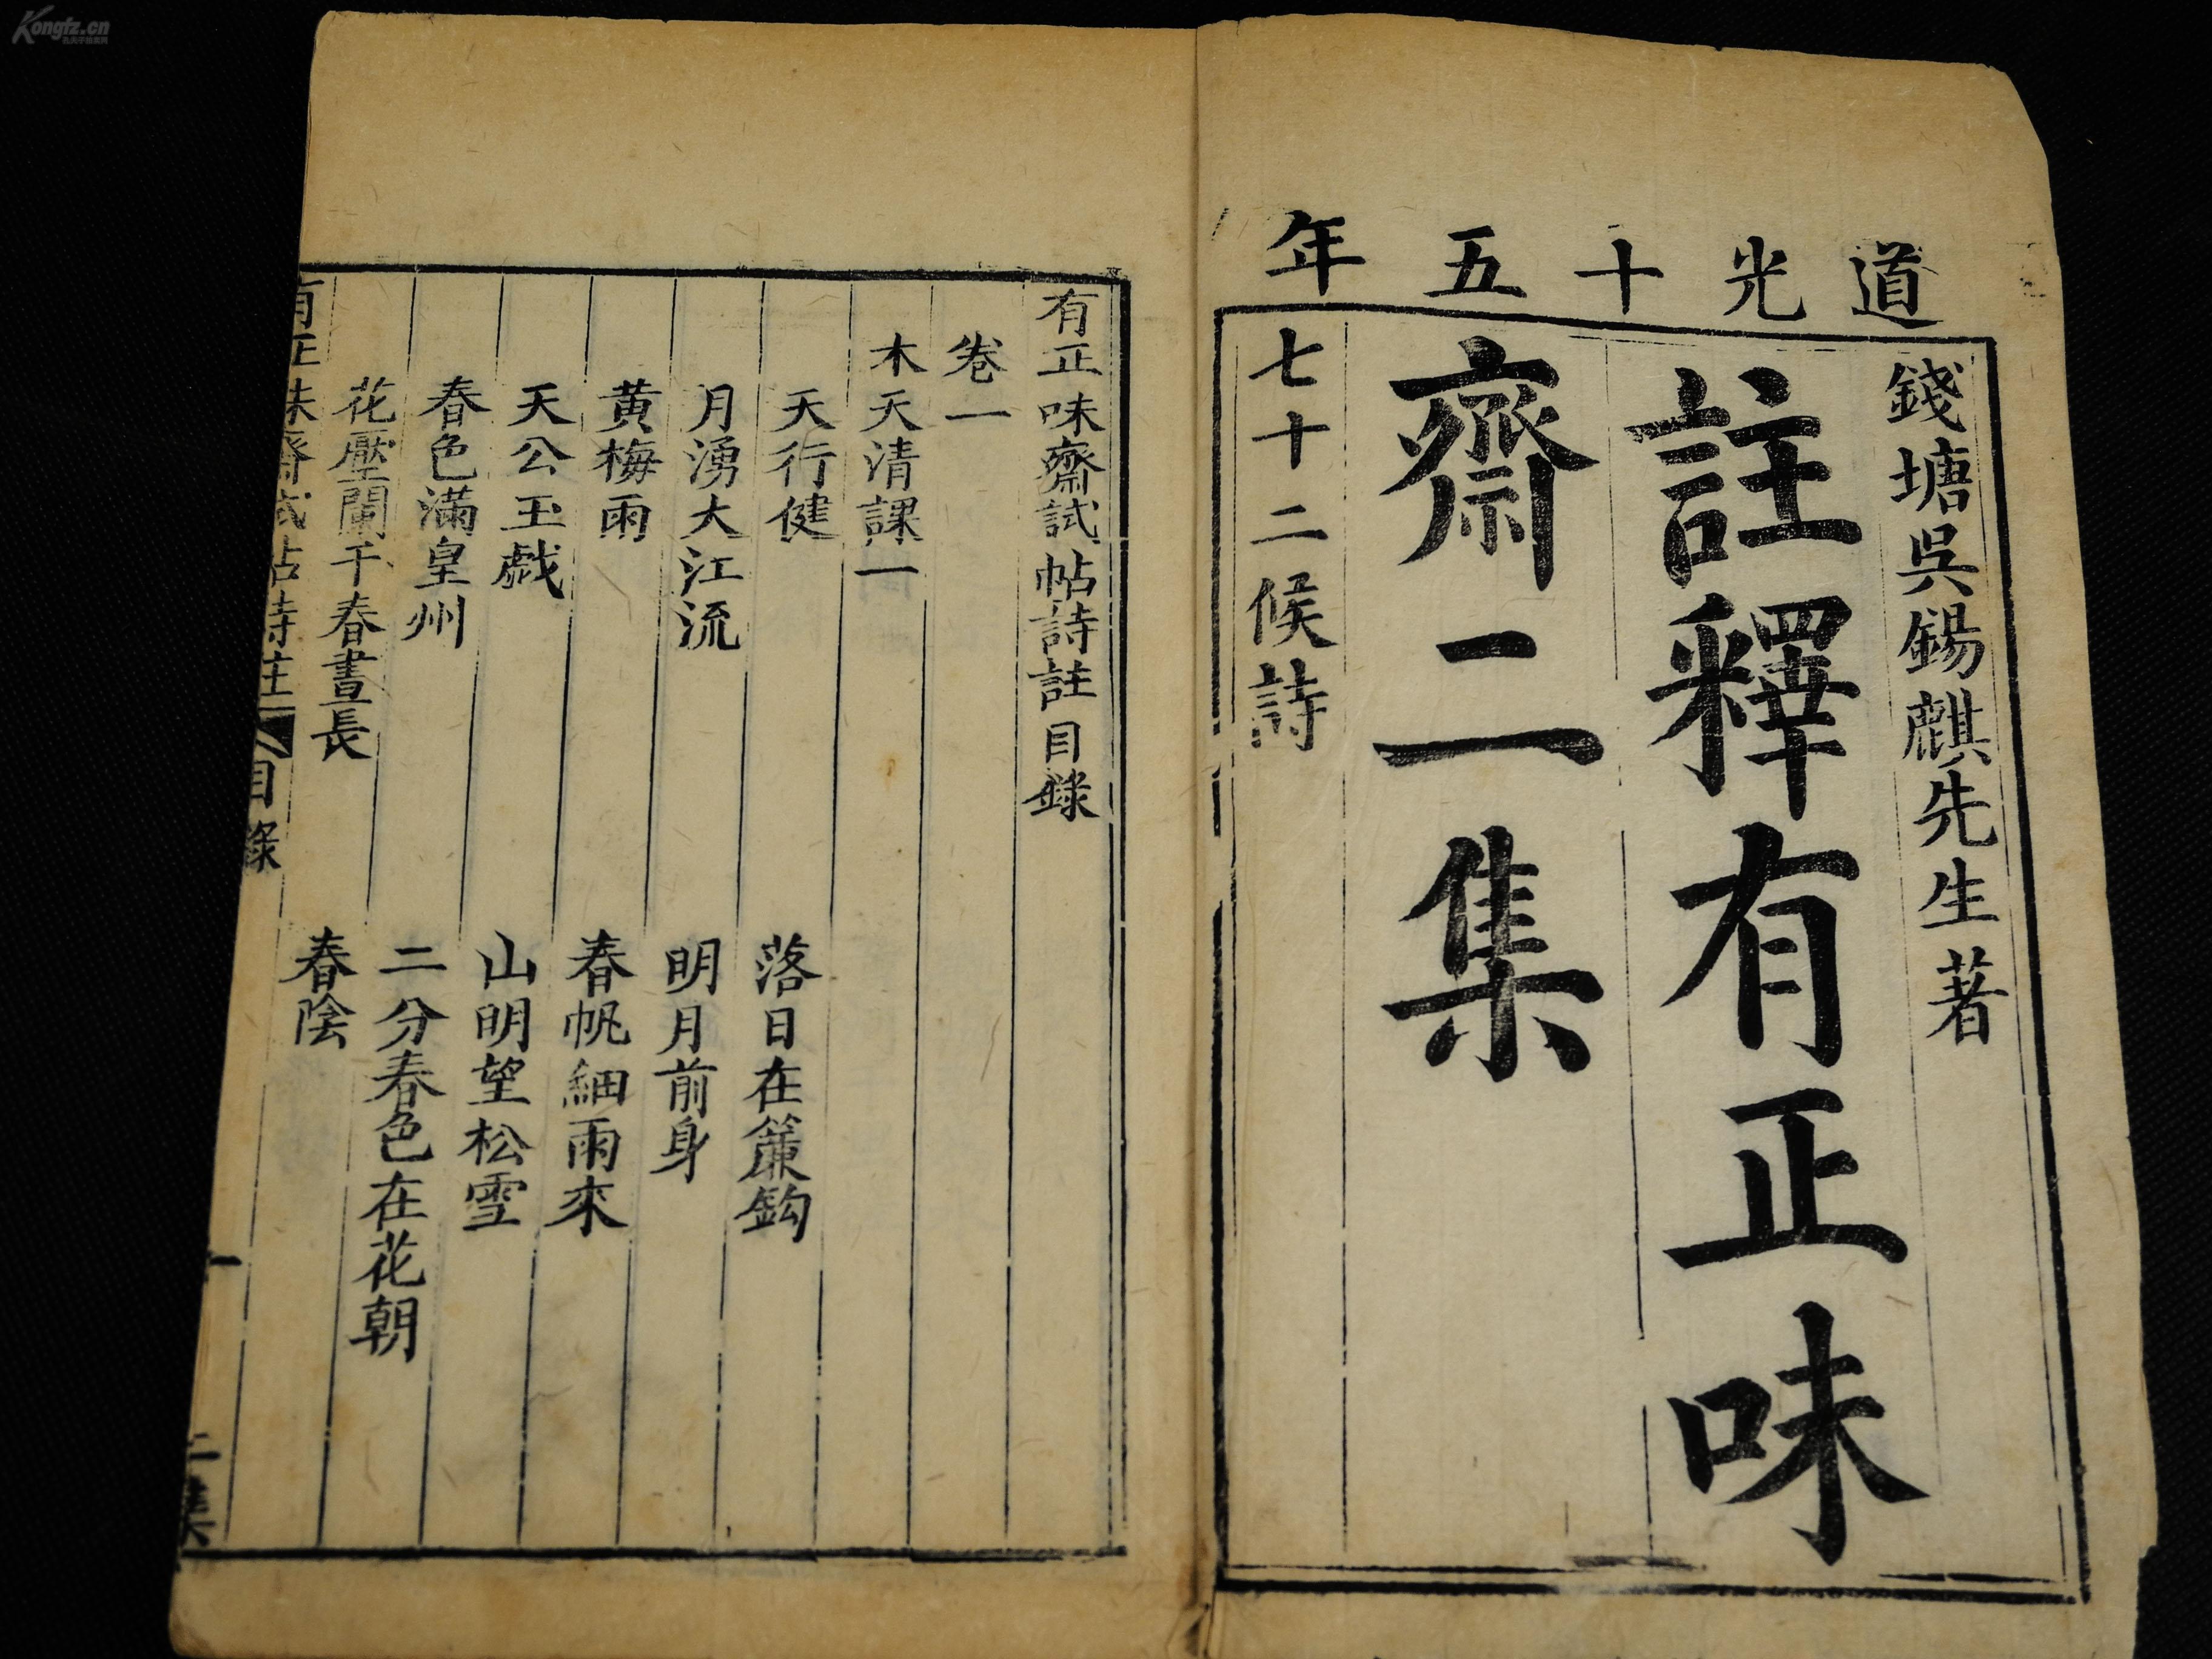 道光十五年
錢塘吳錫麒先生著
註釋有正味
齋二集
七十二候詩
有正味齋試帖詩註目錄
卷一
木天清課一
天行健
落日在簾鈎
月湧大江流
明月前身
黄梅雨
春帆細雨來
天公玉戯
山明望松雪
春色滿皇州
二分春色在花朝
花壓闌干春晝長
春陰
有正味齋試帖詩註
目錄
一
二集
Kongfz.cn